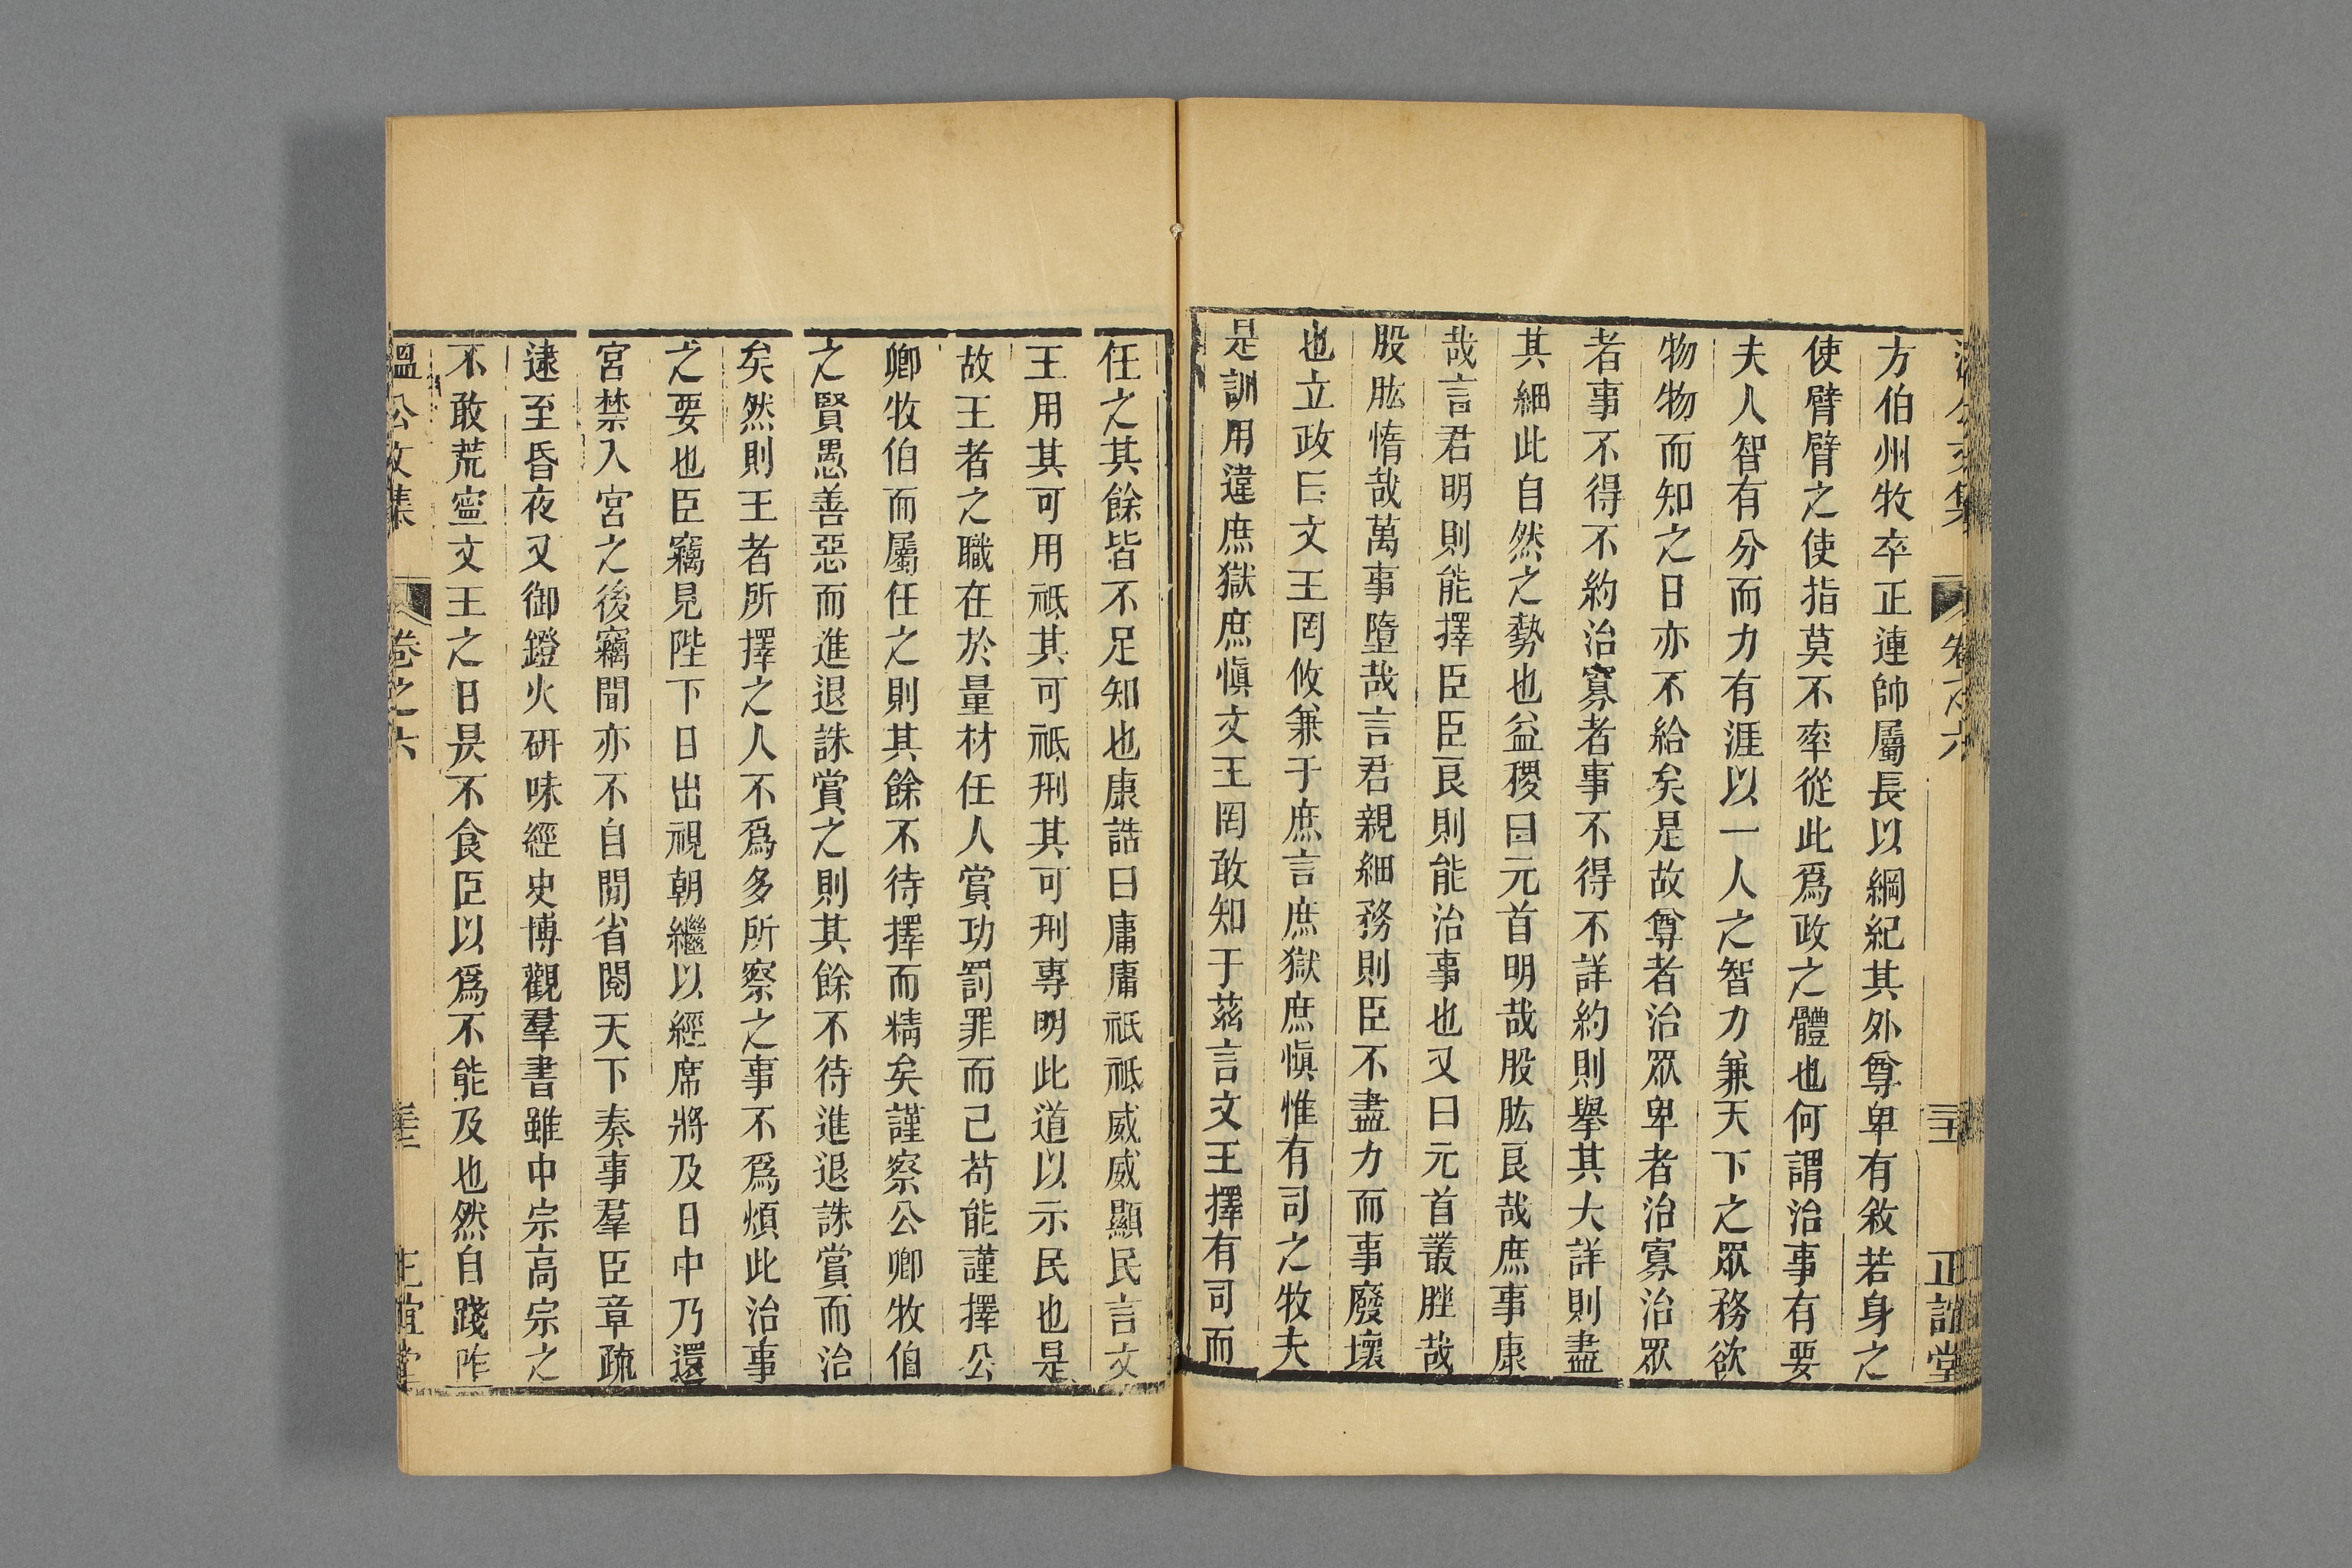 溫公文集 卷之六 正誼堂
方伯州牧卒正連帥屬長以綱紀其外尊卑有敘若身之
使臂臂之使指莫不率從此爲政之體也何謂治事有要
夫人智有分而力有涯以一人之智力兼天下之眾務欲
物物而知之日亦不給矣是故尊者治眾卑者治寡治眾
者事不得不約治寡者事不得不詳約則舉其大詳則盡
其細此自然之勢也益稷曰元首明哉股肱良哉庶事康
哉言君明則能擇臣臣良則能治事也又曰元首叢脞哉
股肱惰哉萬事墮哉言君親細務則臣不盡力而事廢壞
也立政曰文王罔攸兼于庶言庶獄庶愼惟有司之牧夫
是訓用違庶獄庶愼文王罔敢知于茲言文王擇有司而
任之其餘皆不足知也康誥曰庸庸祇祗威威顯民言文
王用其可用祗其可祗刑其可刑專明此道以示民也是
故王者之職在於量材任人賞功罰罪而己苟能謹擇公
卿牧伯而屬任之則其餘不待擇而精矣謹察公卿牧伯
之賢愚善惡而進退誅賞之則其餘不待進退誅賞而治
矣然則王者所擇之人不爲多所察之事不爲煩此治事
之要也臣竊見陛下日出視朝繼以經席將及日中乃還
宮禁入宮之後竊聞亦不自閒省閱天下奏事羣臣章疏
逮至昏夜又御鐙火研味經史博觀羣書雖中宗高宗之
不敢荒寍文王之日昃不食臣以爲不能及也然自踐阼
溫公文集 卷之六 正誼堂